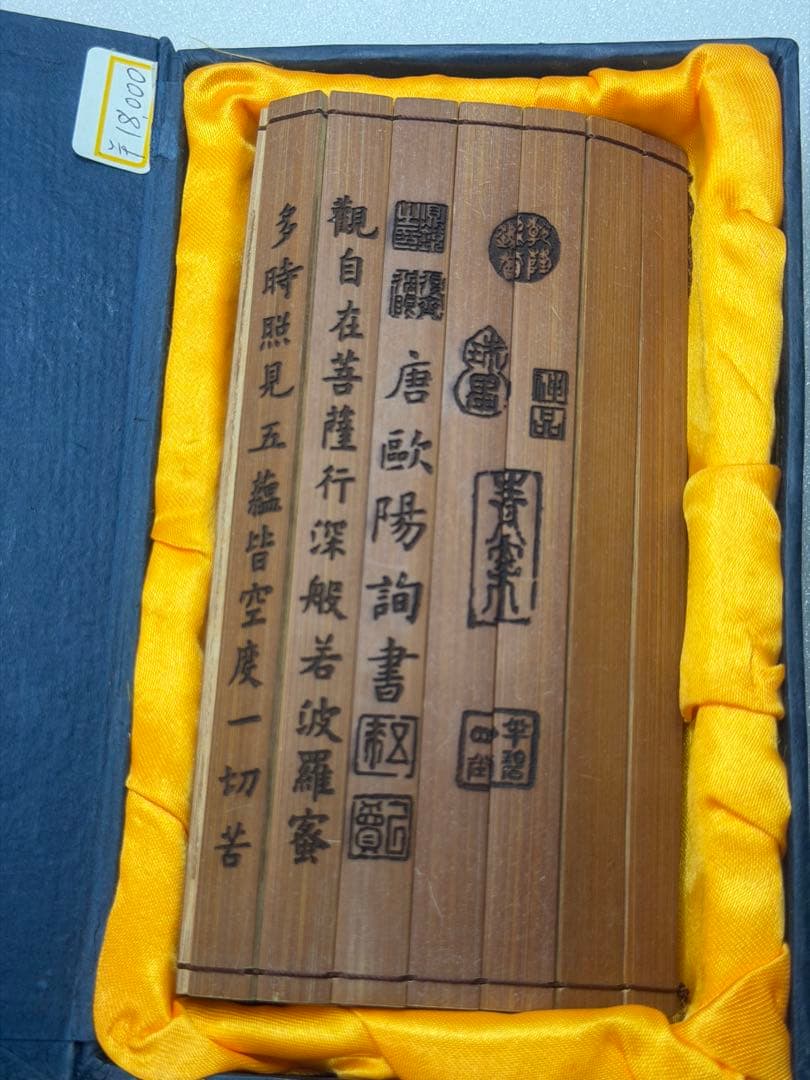 唐歐陽詢書
觀自在菩薩行深般若波羅蜜
多時照見五蘊皆空度一切苦
¥18,000
神品